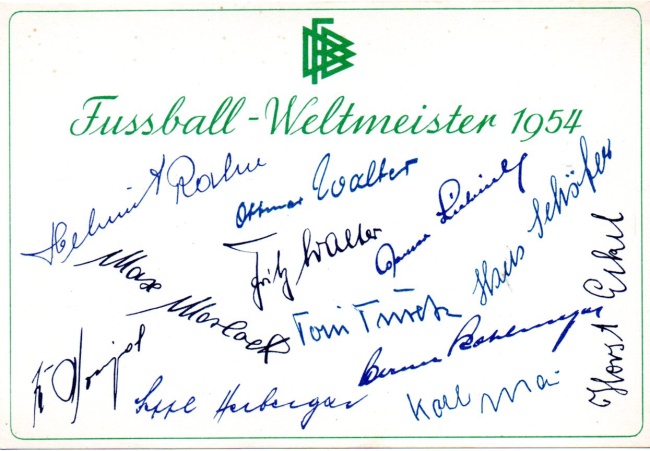 DFB
Fussball-Weltmeister 1954
Helmut Rahn
Ottmar Walter
Fritz Walter
Werner Liebrich
Hans Schäfer
Max Morlock
Toni Turek
Horst Eckel
Werner Kohlmeyer
Karl Mai
Sepp Herberger